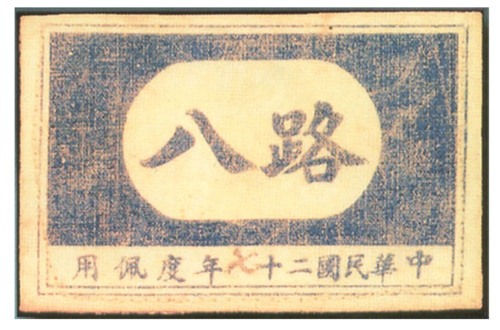 八路
中華民國二十七年度佩用